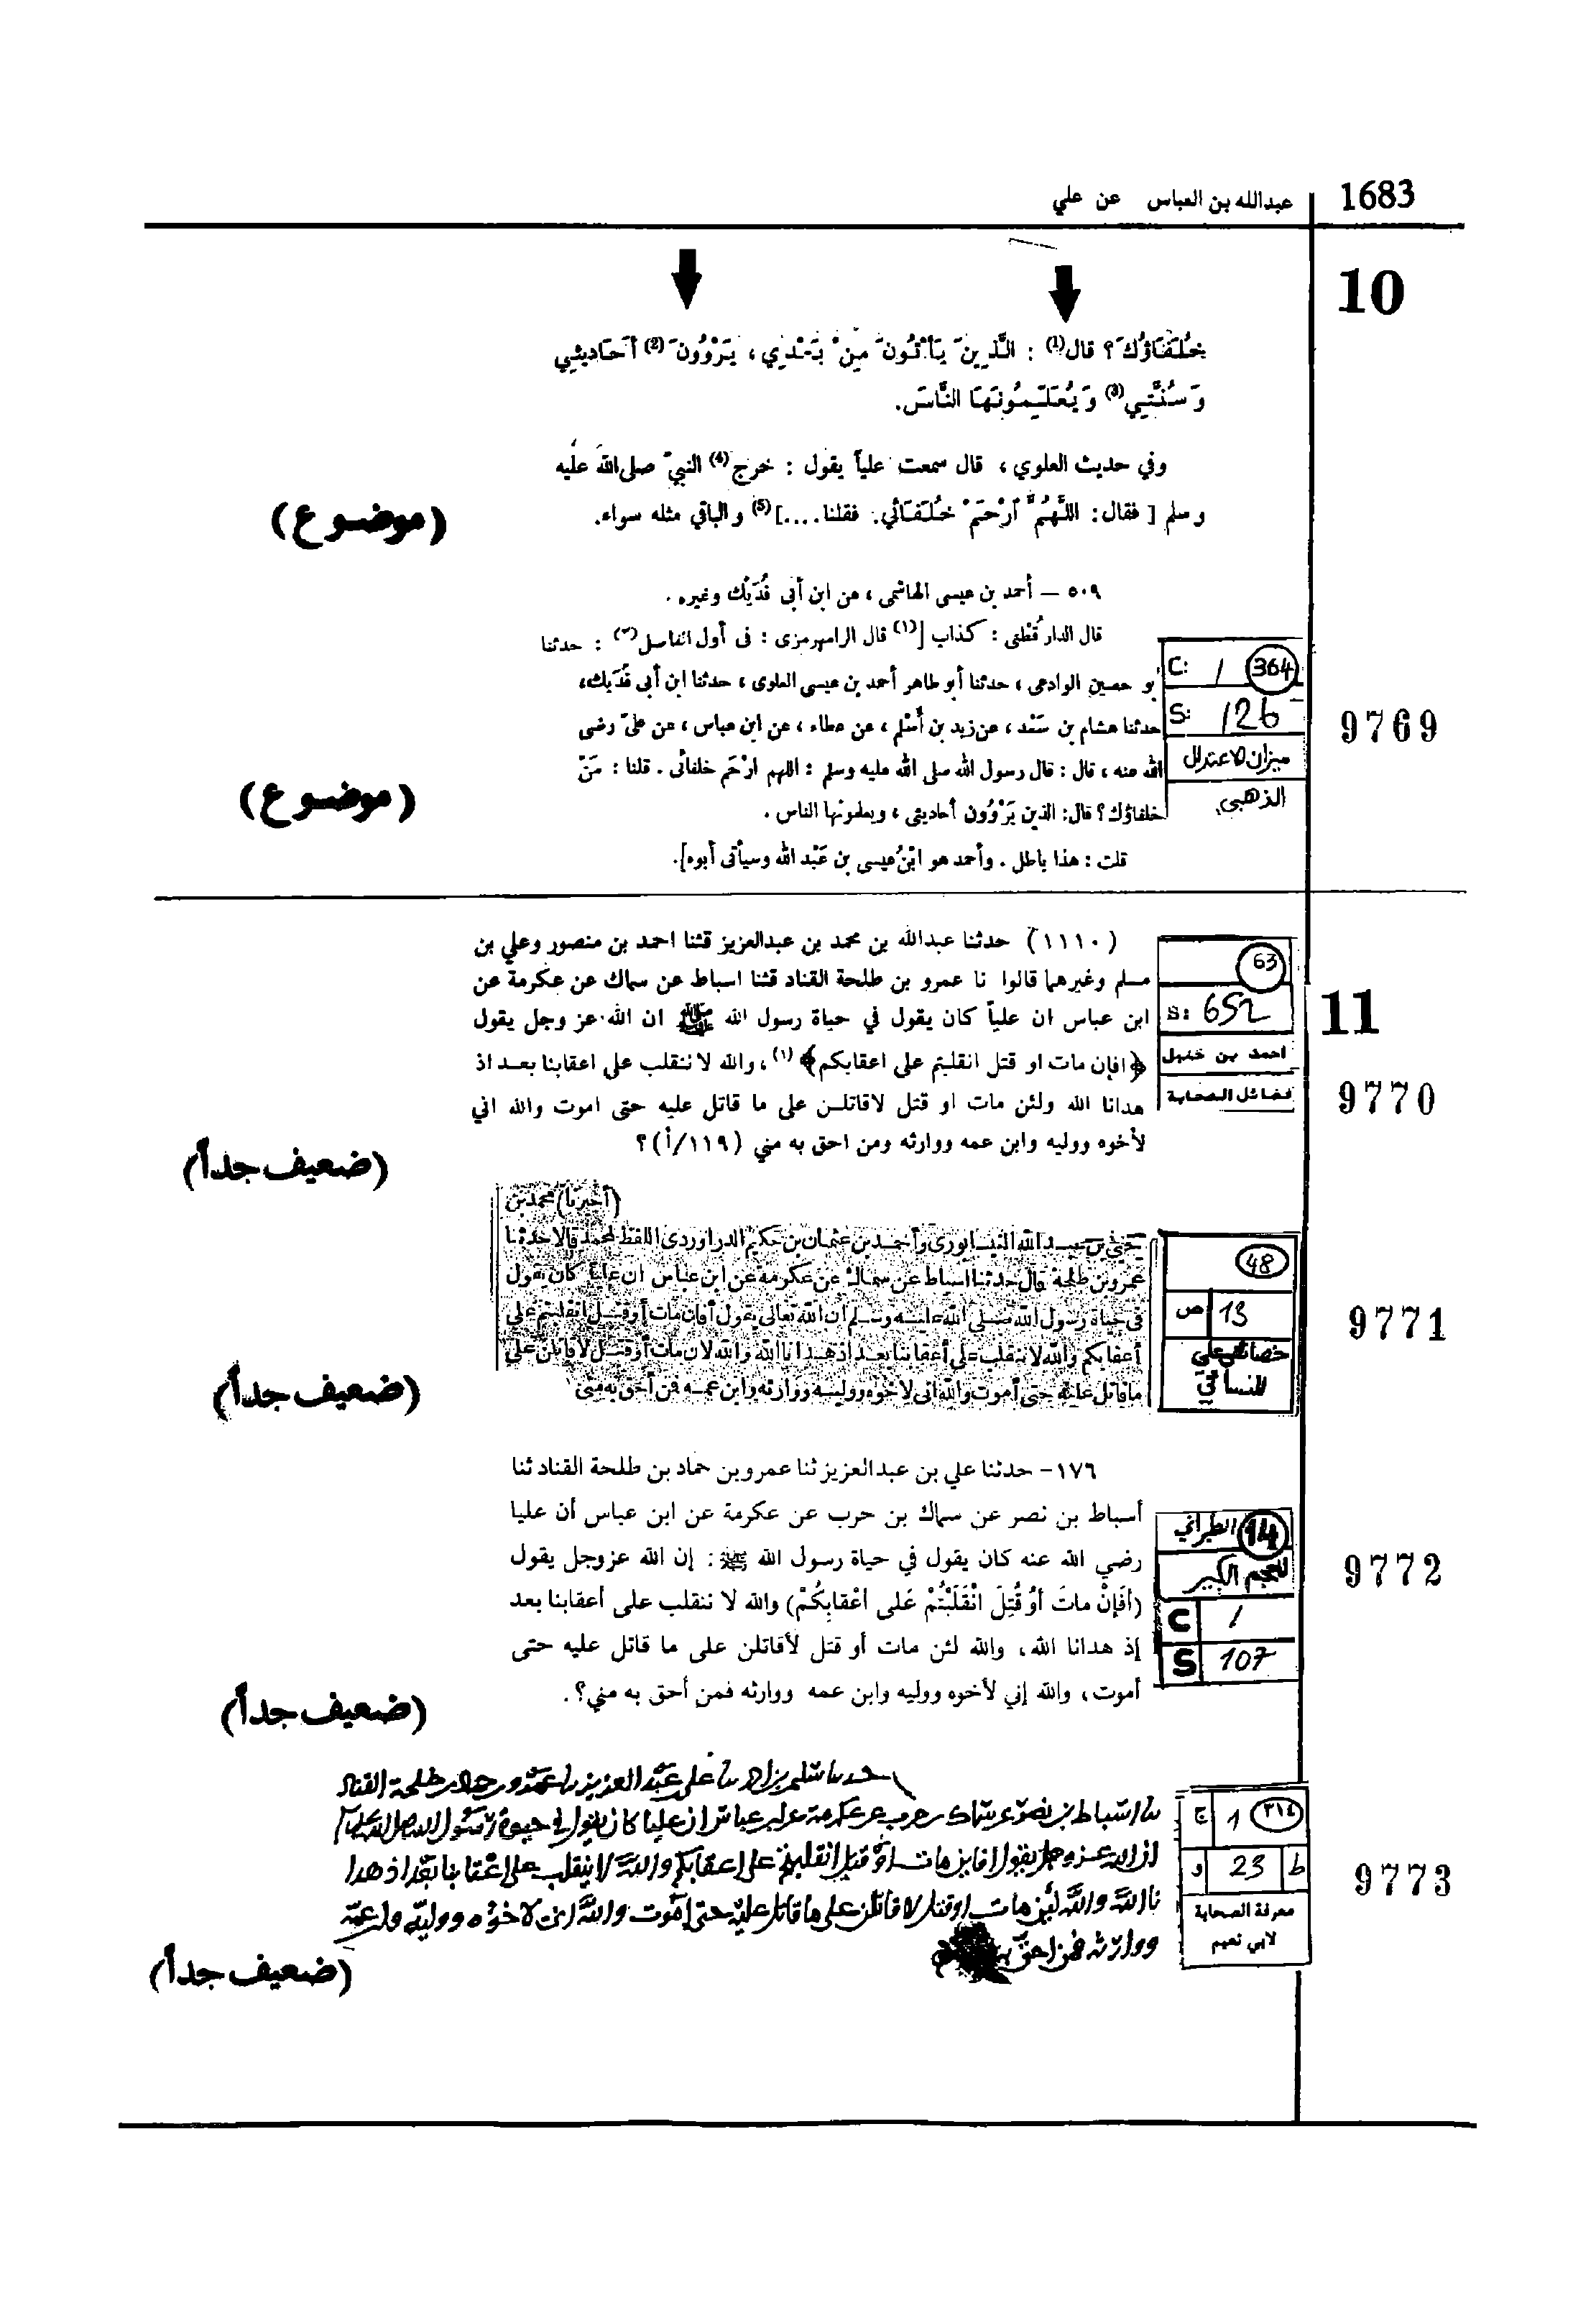 1683
عبدالله بن العباس عن علي
10
خُلَفَاؤُكَ؟ قال(1) : الَّذِينَ يَأْتُونَ مِنْ بَعْدِي، يَرْوُونَ(2) أَحَادِيثِي
وَسُنَّتِي(3) وَيُعَلِّمُونَهَا النَّاسَ.
وفي حديث العلوي، قال سمعت علياً يقول : خرج(4) النبيّ صلى الله عليه
وسلم [ فقال: اللَّهُمَّ أَرْحَمْ خُلَفَائي. فقلنا....](5) والباقي مثله سواء.
(موضوع)
٥٠٩ — أحمد بن عيسى الهاشمى ، عن ابن أبى فُدَيْك وغيره .
قال الدارقُطْنى : كذاب [(١) قال الرامهرمزى : فى أول الفاصل(٢) : حدثنا
بو حصين الوادعى ، حدثنا أبو طاهر أحمد بن عيسى العلوى ، حدثنا ابن أبى فُدَيك،
حدثنا هشام بن سَعْد ، عن زيد بن أَسْلم ، عن عطاء ، عن ابن عباس ، عن علىّ رضى
الله عنه ، قال : قال رسول الله صلى الله عليه وسلم : اللهم ارْحَم خلفائى . قلنا : مَنْ
خلفاؤك ؟ قال: الذين يَرْوُون أحاديثى ، ويعلمونها الناس .
قلت : هذا باطل . وأحمد هو ابْنُ عيسى بن عَبْد الله وسيأتى أبوه].
(موضوع)
C: 1 364
S: 126
ميزان الاعتدال
الذهبي
9769
(١١١٠) حدثنا عبدالله بن محمد بن عبدالعزيز قثنا احمد بن منصور وعلي بن
مسلم وغيرهما قالوا نا عمرو بن طلحة القناد قثنا اسباط عن سماك عن عكرمة عن
ابن عباس ان علياً كان يقول في حياة رسول الله ﷺ ان الله عز وجل يقول
﴿افإن مات او قتل انقلبتم على اعقابكم﴾(١)، والله لا ننقلب على اعقابنا بعد اذ
هدانا الله ولئن مات او قتل لاقاتلن على ما قاتل عليه حتى اموت والله اني
لأخوه ووليه وابن عمه ووارثه ومن احق به مني (١١٩/أ)؟
(ضعيف جداً)
63
S: 652
احمد بن حنبل
فضائل الصحابة
11
9770
(أخبرنا) محمد بن
يحيى بن عبد الله النيسابورى وأحمد بن عثمان بن حكيم الدراوردى اللفظ لمحمد قالا حدثنا
عمرو بن طلحة قال حدثنا اسباط عن سماك عن عكرمة عن ابن عباس ان عليا كان يقول
فى حياة رسول الله صلى الله عليه وسلم ان الله تعالى يقول أفان مات أو قتل انقلبتم على
أعقابكم والله لا ننقلب على أعقابنا بعد اذ هدانا الله والله لان مات أو قتل لاقاتلن على
ما قاتل عليه حتى أموت والله انى لاخوه ووليه ووارثه وابن عمه فمن أحق به منى
(ضعيف جداً)
48
ص 13
خصائص علي
للنسائي
9771
١٧٦- حدثنا علي بن عبد العزيز ثنا عمرو بن حماد بن طلحة القناد ثنا
أسباط بن نصر عن سماك بن حرب عن عكرمة عن ابن عباس أن عليا
رضي الله عنه كان يقول في حياة رسول الله ﷺ: إن الله عزوجل يقول
(أَفَإِنْ ماتَ أوْ قُتِلَ انْقَلَبْتُمْ عَلى أعْقابِكُمْ) والله لا ننقلب على أعقابنا بعد
إذ هدانا الله، والله لئن مات أو قتل لأقاتلن على ما قاتل عليه حتى
أموت، والله إني لأخوه ووليه وابن عمه ووارثه فمن أحق به مني؟.
(ضعيف جداً)
14 الطبراني
المعجم الكبير
C 1
S 107
9772
حدثنا سليمن بن احمد ثنا علي بن عبد العزيز ثنا عمرو بن حماد بن طلحة القناد
ثنا اسباط بن نصر عن سماك بن حرب عن عكرمة عن ابن عباس ان عليا كان يقول في حيوة رسول الله صلى الله عليه وسلم
ان الله عز وجل يقول افاين مات او قتل انقلبتم على اعقابكم والله لا ننقلب على اعقابنا بعد اذ هدا
نا الله والله لئن مات او قتل لاقاتلن على ما قاتل عليه حتى اموت والله اني لاخوه ووليه وابن عمه
ووارثه فمن احق به
(ضعيف جداً)
ج 1 ٣١٤
و 23 b
معرفة الصحابة
لابي نعيم
9773